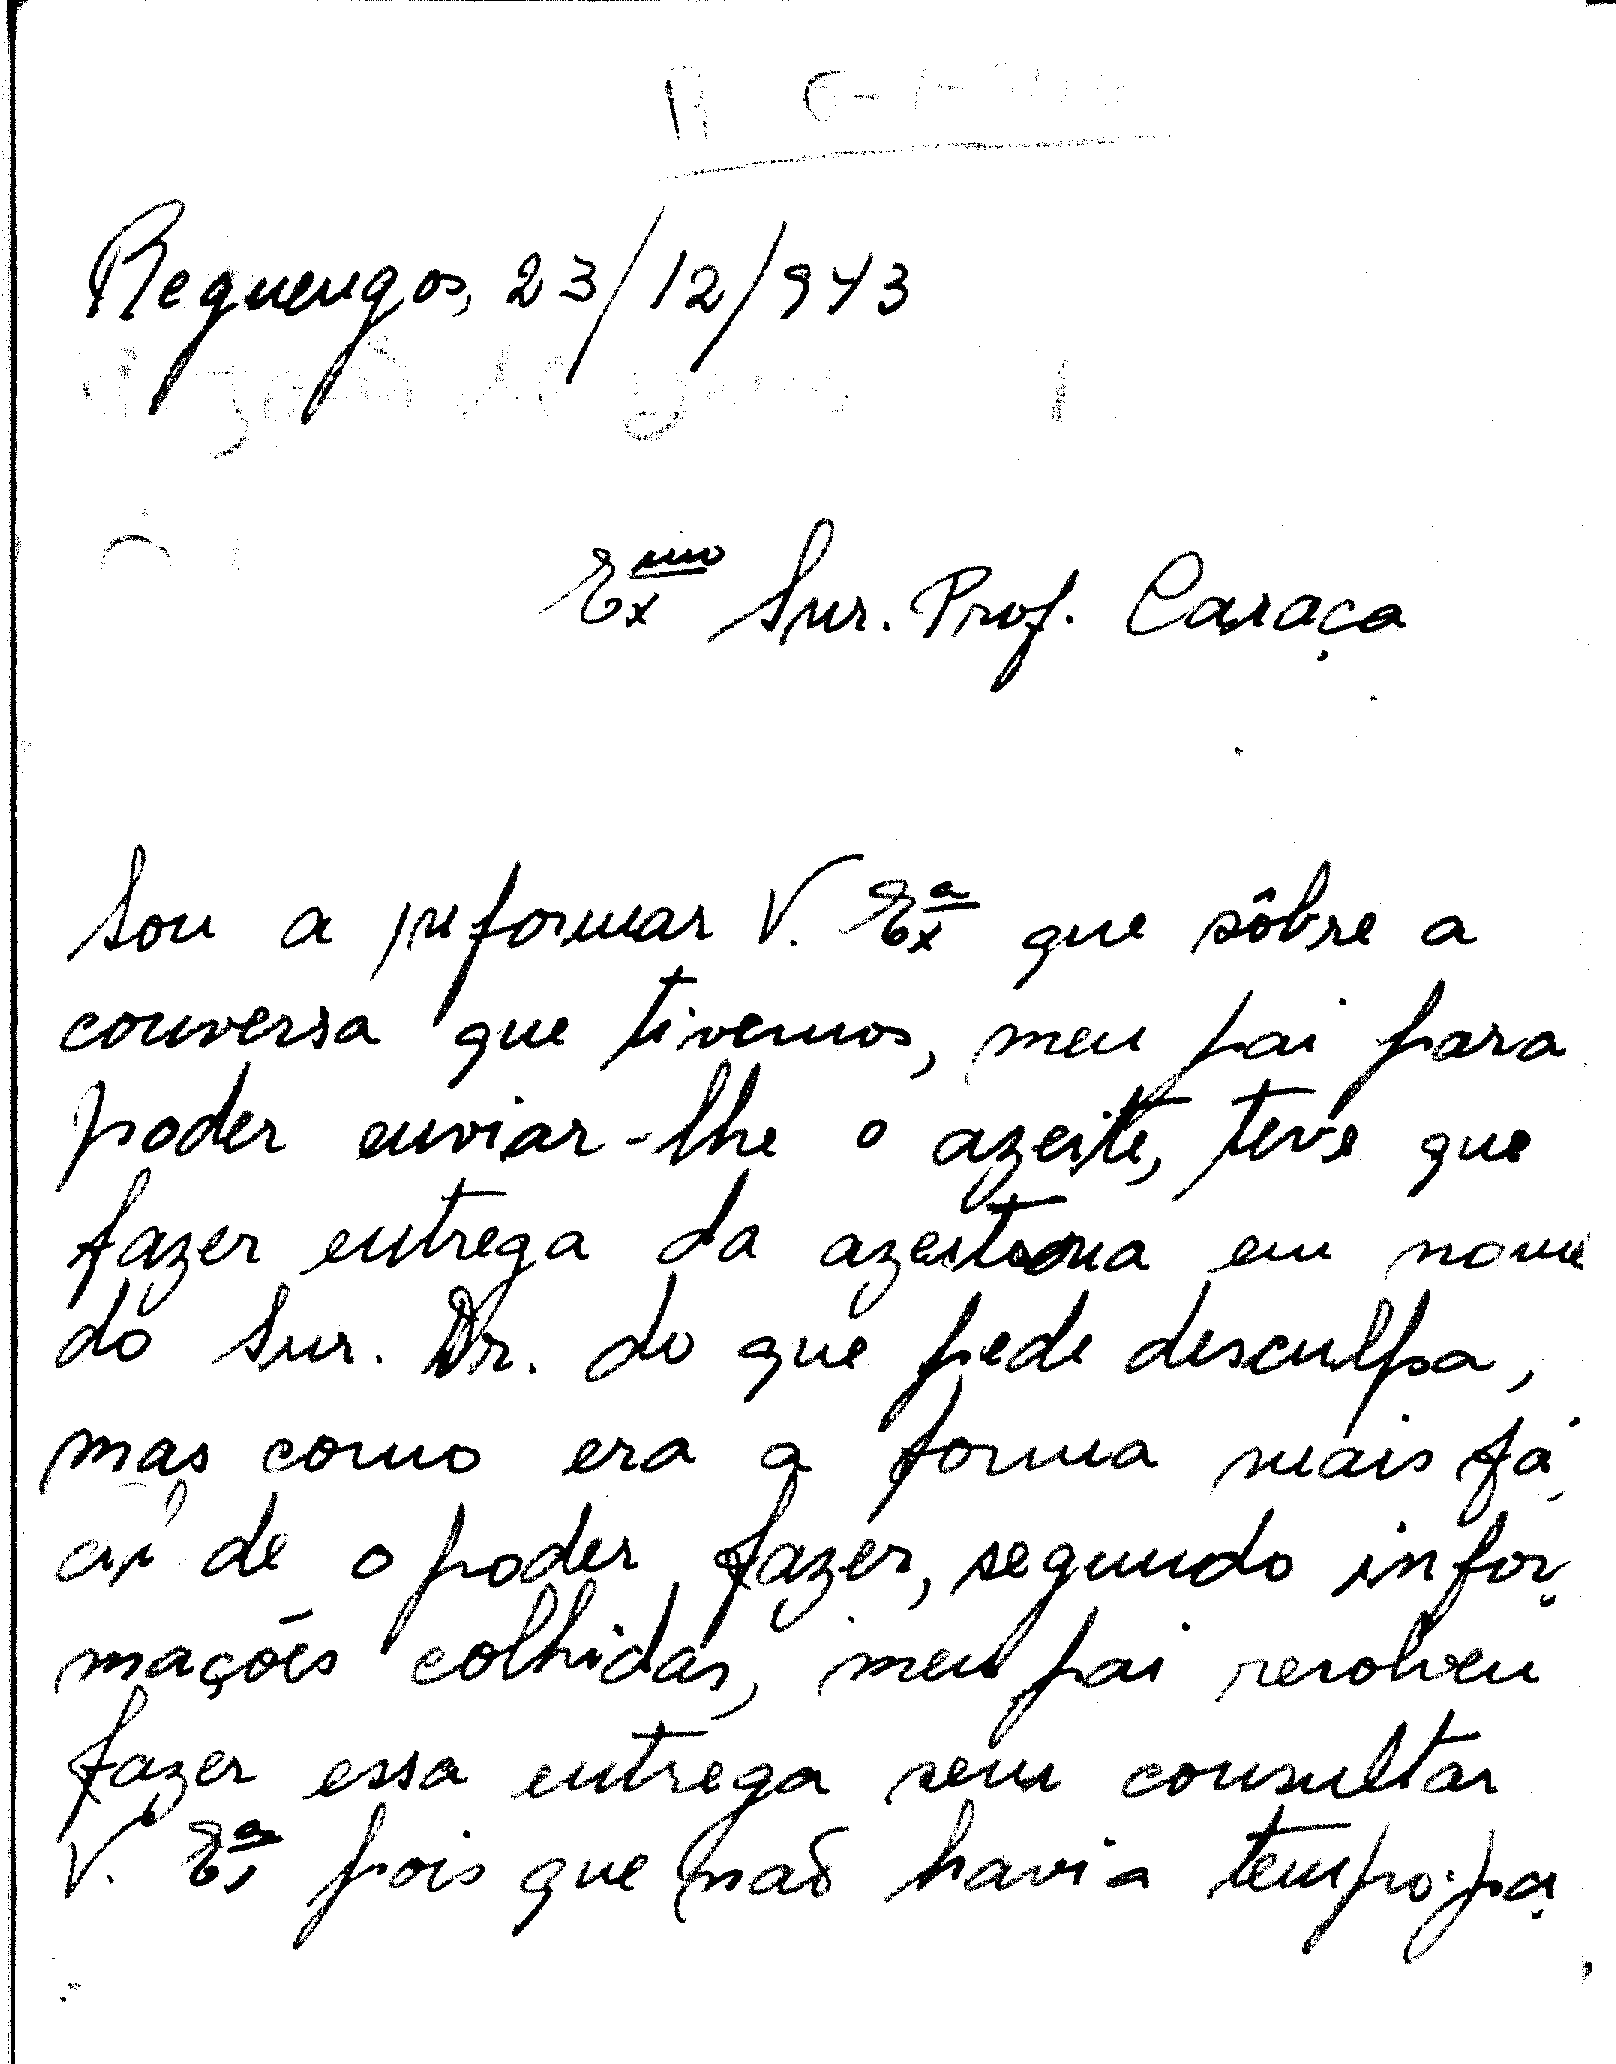 Reguengos, 23/12/943
Exmo Snr. Prof. Caraça
Sou a informar V. Exa que sôbre a
conversa que tivemos, meu pai para
poder enviar-lhe o azeite, teve que
fazer entrega da azeitona em nome
do Snr. Dr. do que pede desculpa,
mas como era a forma mais fá
cil de o poder fazer, segundo infor
mações colhidas, meu pai resolveu
fazer essa entrega sem consultar
V. Exa pois que não havia tempo pa